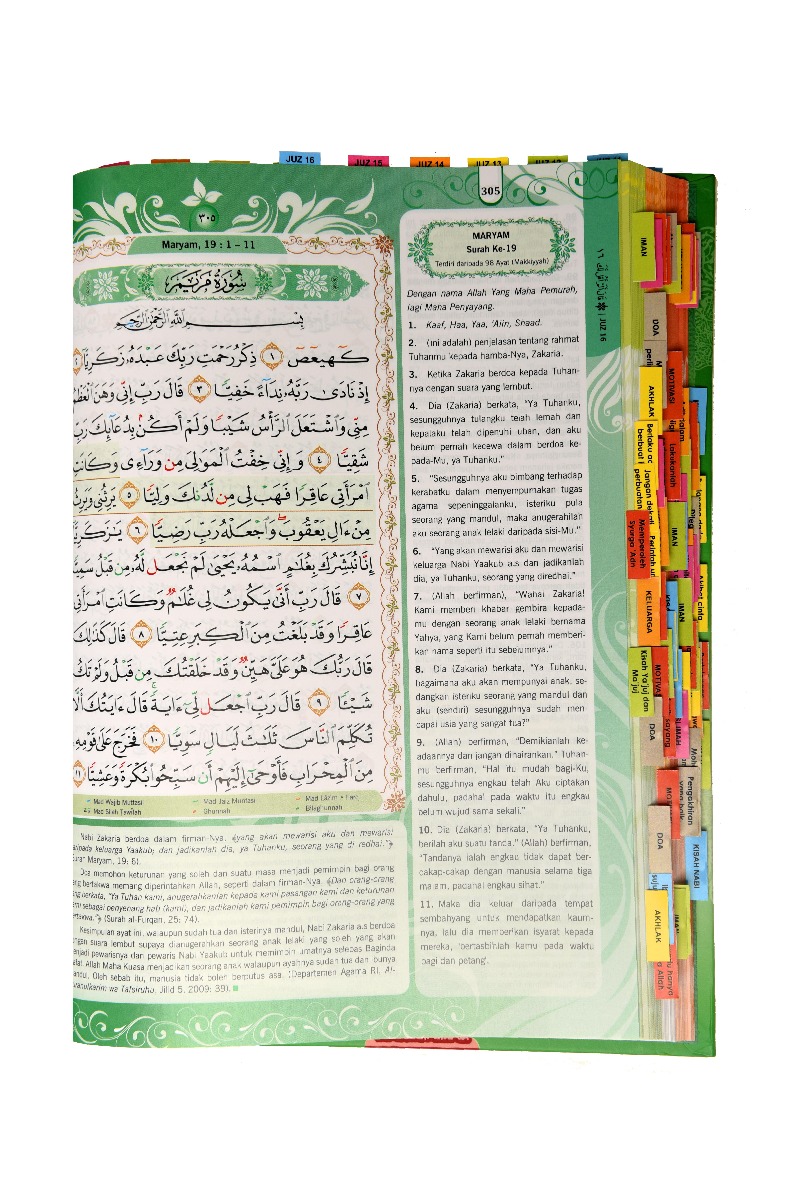 JUZ 16
JUZ 15
JUZ 14
JUZ 13
٣٠٥
Maryam, 19 : 1 – 11
سُورَةُ مَرْيَمَ
بِسْمِ اللَّهِ الرَّحْمَٰنِ الرَّحِيمِ
كٓهيعٓصٓ ١ ذِكْرُ رَحْمَتِ رَبِّكَ عَبْدَهُۥ زَكَرِيَّآ
إِذْ نَادَىٰ رَبَّهُۥ نِدَآءً خَفِيًّا ٣ قَالَ رَبِّ إِنِّى وَهَنَ ٱلْعَظْمُ
مِنِّى وَٱشْتَعَلَ ٱلرَّأْسُ شَيْبًا وَلَمْ أَكُنۢ بِدُعَآئِكَ رَبِّ
شَقِيًّا ٤ وَإِنِّى خِفْتُ ٱلْمَوَٰلِىَ مِن وَرَآءِى وَكَانَتِ
ٱمْرَأَتِى عَاقِرًا فَهَبْ لِى مِن لَّدُنكَ وَلِيًّا ٥ يَرِثُنِى وَيَرِثُ
مِنْ ءَالِ يَعْقُوبَ وَٱجْعَلْهُ رَبِّ رَضِيًّا ٦ يَٰزَكَرِيَّآ
إِنَّا نُبَشِّرُكَ بِغُلَٰمٍ ٱسْمُهُۥ يَحْيَىٰ لَمْ نَجْعَل لَّهُۥ مِن قَبْلُ سَمِيًّا
٧ قَالَ رَبِّ أَنَّىٰ يَكُونُ لِى غُلَٰمٌ وَكَانَتِ ٱمْرَأَتِى
عَاقِرًا وَقَدْ بَلَغْتُ مِنَ ٱلْكِبَرِ عِتِيًّا ٨ قَالَ كَذَٰلِكَ
قَالَ رَبُّكَ هُوَ عَلَىَّ هَيِّنٌ وَقَدْ خَلَقْتُكَ مِن قَبْلُ وَلَمْ تَكُ
شَيْـًٔا ٩ قَالَ رَبِّ ٱجْعَل لِّىٓ ءَايَةً قَالَ ءَايَتُكَ أَلَّا
تُكَلِّمَ ٱلنَّاسَ ثَلَٰثَ لَيَالٍ سَوِيًّا ١٠ فَخَرَجَ عَلَىٰ قَوْمِهِۦ
مِنَ ٱلْمِحْرَابِ فَأَوْحَىٰٓ إِلَيْهِمْ أَن سَبِّحُوا۟ بُكْرَةً وَعَشِيًّا ١١
Mad Wajib Muttasil
Mad Jaiz Munfasil
Mad Silah Tawilah
Ghunnah
Nabi Zakaria berdoa dalam firman-Nya, yang akan mewarisi aku dan mewarisi
daripada keluarga Yaakub; dan jadikanlah dia, ya Tuhanku, seorang yang di redhai."
Maryam, 19: 6).
Doa memohon keturunan yang soleh dan suatu masa menjadi pemimpin bagi orang
yang bertakwa memang diperintahkan Allah, seperti dalam firman-Nya, Dan orang-orang
yang berkata, "Ya Tuhan kami, anugerahkanlah kepada kami pasangan kami dan keturunan
kami sebagai penyenang hati (kami), dan jadikanlah kami pemimpin bagi orang-orang yang
bertakwa." (Surah al-Furqan, 25: 74).
Kesimpulan ayat ini, walaupun sudah tua dan isterinya mandul, Nabi Zakaria a.s berdoa
dengan suara lembut supaya dianugerahkan seorang anak lelaki yang soleh yang akan
menjadi pewarisnya dan pewaris Nabi Yaakub untuk memimpin umatnya selepas Baginda
Allah Maha Kuasa menjadikan seorang anak walaupun ayahnya sudah tua dan ibunya
mandul. Oleh sebab itu, manusia tidak boleh berputus asa. (Departemen Agama RI, Al-
Qur'anulkarim wa Tafsiruhu, Jilid 5, 2009: 39).
305
MARYAM
Surah Ke-19
Terdiri daripada 98 Ayat (Makkiyyah)
Dengan nama Allah Yang Maha Pemurah,
lagi Maha Penyayang.
1. Kaaf, Haa, Yaa, 'Aiin, Shaad.
2. (ini adalah) penjelasan tentang rahmat
Tuhanmu kepada hamba-Nya, Zakaria.
3. Ketika Zakaria berdoa kepada Tuhan-
nya dengan suara yang lembut.
4. Dia (Zakaria) berkata, "Ya Tuhanku,
sesungguhnya tulangku telah lemah dan
kepalaku telah dipenuhi uban, dan aku
belum pernah kecewa dalam berdoa ke-
pada-Mu, ya Tuhanku."
5. "Sesungguhnya aku bimbang terhadap
kerabatku dalam menyempurnakan tugas
agama sepeninggalanku, isteriku pula
seorang yang mandul, maka anugerahilah
aku seorang anak lelaki daripada sisi-Mu."
6. "Yang akan mewarisi aku dan mewarisi
keluarga Nabi Yaakub a.s dan jadikanlah
dia, ya Tuhanku, seorang yang diredhai."
7. (Allah berfirman), "Wahai Zakaria!
Kami memberi khabar gembira kepada-
mu dengan seorang anak lelaki bernama
Yahya, yang Kami belum pernah memberi-
kan nama seperti itu sebelumnya."
8. Dia (Zakaria) berkata, "Ya Tuhanku,
bagaimana aku akan mempunyai anak, se-
dangkan isteriku seorang yang mandul dan
aku (sendiri) sesungguhnya sudah men-
capai usia yang sangat tua?"
9. (Allah) berfirman, "Demikianlah ke-
adaannya dan jangan dihairankan." Tuhan-
mu berfirman, "Hal itu mudah bagi-Ku,
sesungguhnya engkau telah Aku ciptakan
dahulu, padahal pada waktu itu engkau
belum wujud sama sekali."
10. Dia (Zakaria) berkata, "Ya Tuhanku,
berilah aku suatu tanda." (Allah) berfirman,
"Tandanya ialah engkau tidak dapat ber-
cakap-cakap dengan manusia selama tiga
malam, padahal engkau sihat."
11. Maka dia keluar daripada tempat
sembahyang untuk mendapatkan kaum-
nya, lalu dia memberikan isyarat kepada
mereka, bertasbihlah kamu pada waktu
pagi dan petang.
JUZ 16
IMAN
DOA
MOTIVASI
AKHLAK
IMAN
Memperoleh
Syurga 'Adn
KELUARGA
IMAN
Kisah Ya'juj dan
Ma'juj
DOA
Pengakhiran
DOA
KISAH NABI
AKHLAK